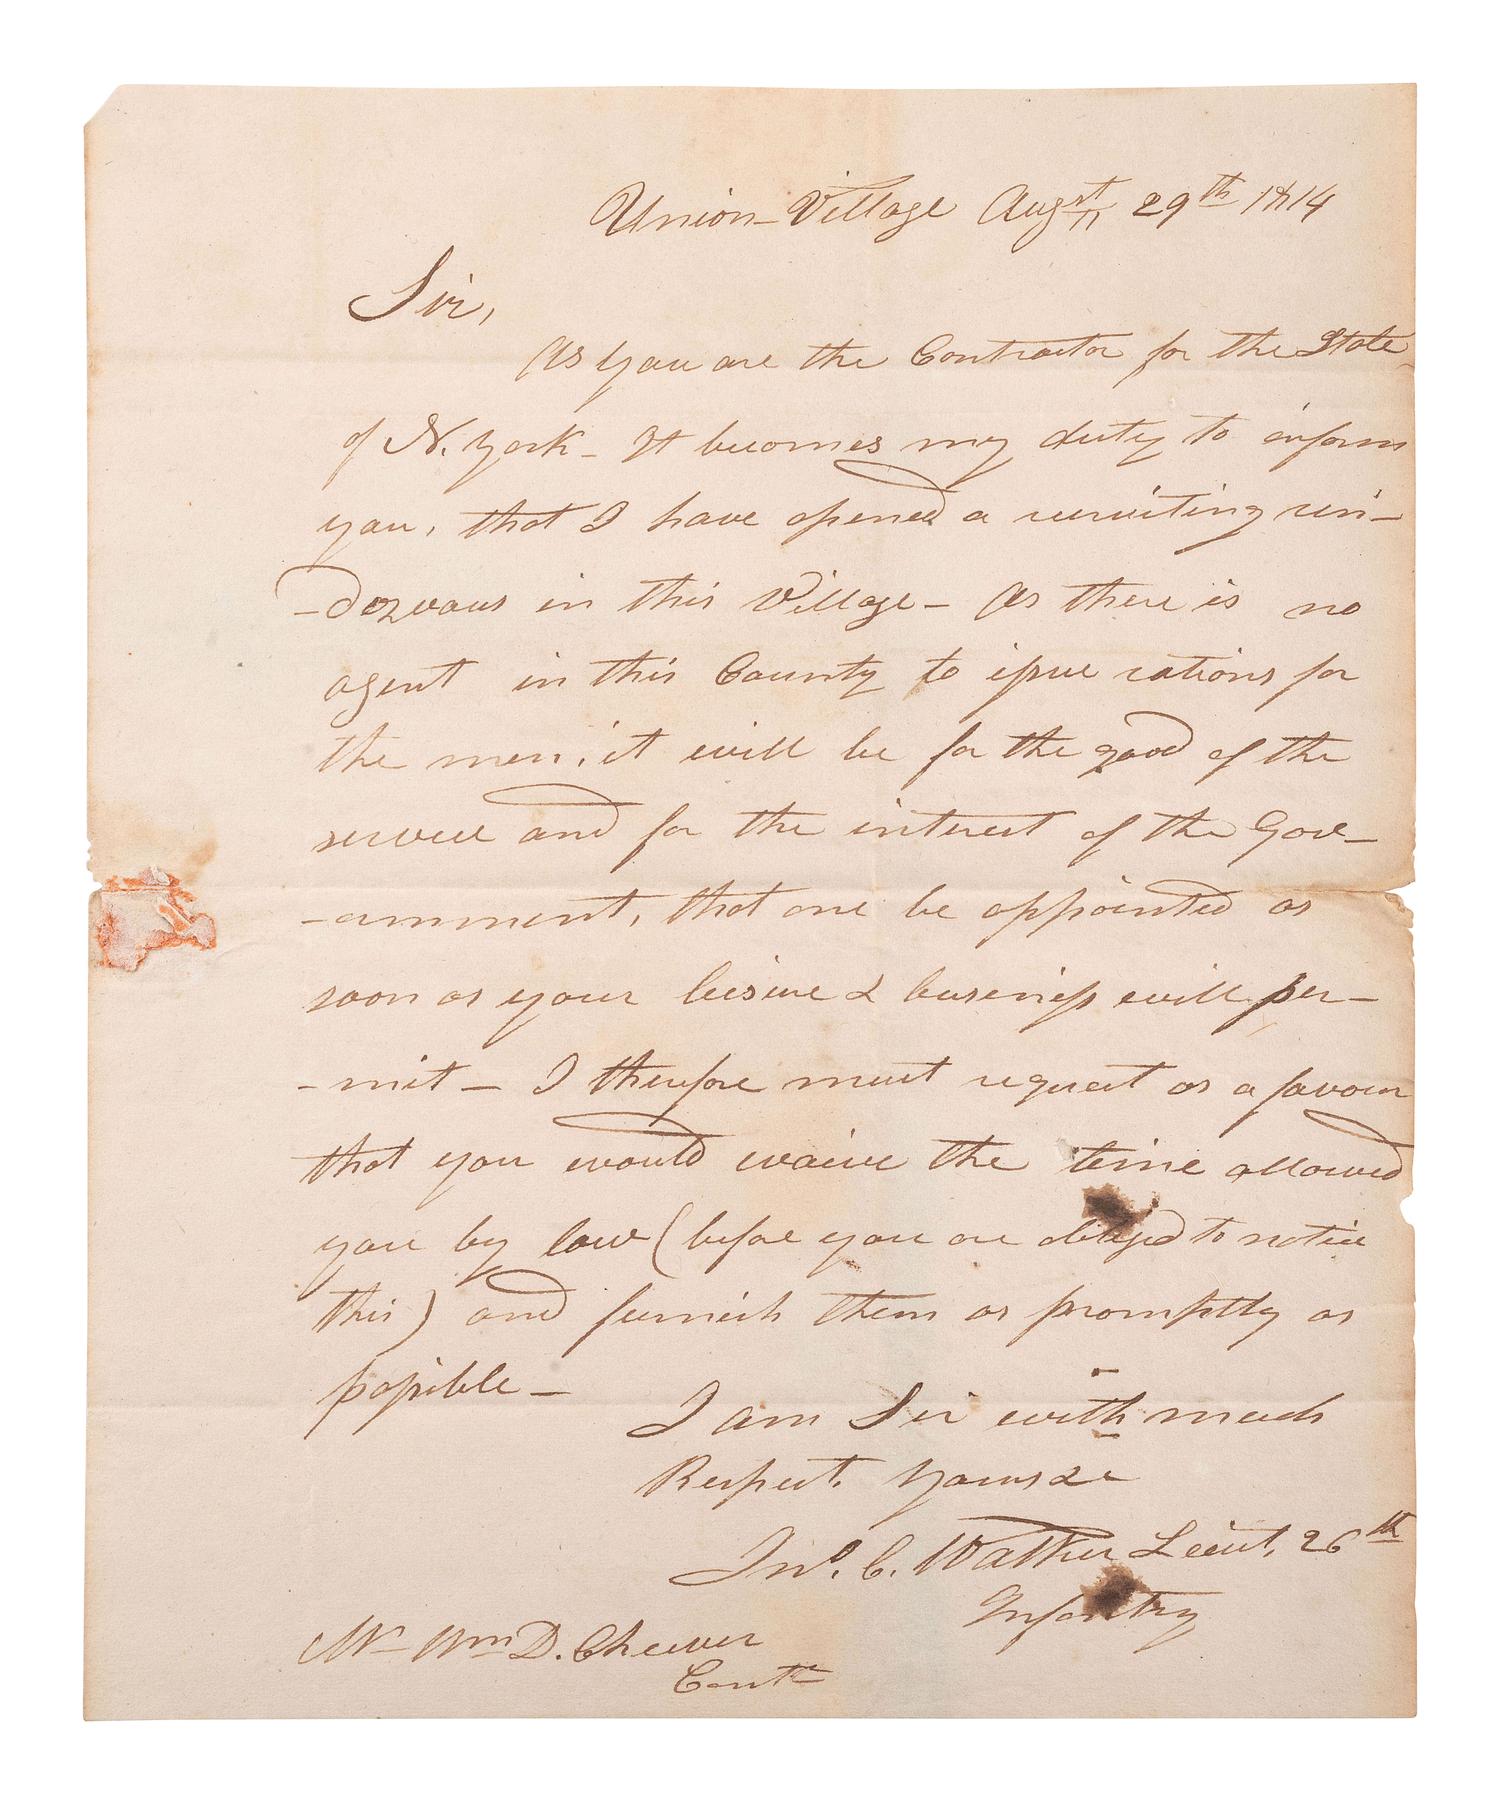 Union-Village Augst 29th 1814
Sir,
As you are the Contractor for the State
of N. York - It becomes my duty to inform
you, that I have opened a recruiting ren-
-dozvous in this Village - As there is no
agent in this County to issue rations for
the men, it will be for the good of the
service and for the interest of the Gove-
-rnment, that one be appointed as
soon as your leisure & business will per-
-mit - I therefore must request as a favour
that you would waive the time allowed
you by law (before you are obliged to notice
this) and furnish them as promptly as
possible -
I am Sir with much
Respect. Yours &c
Jno. C. Walker Lieut. 26th
Infantry
Mr Wm D. Cheever
Contr